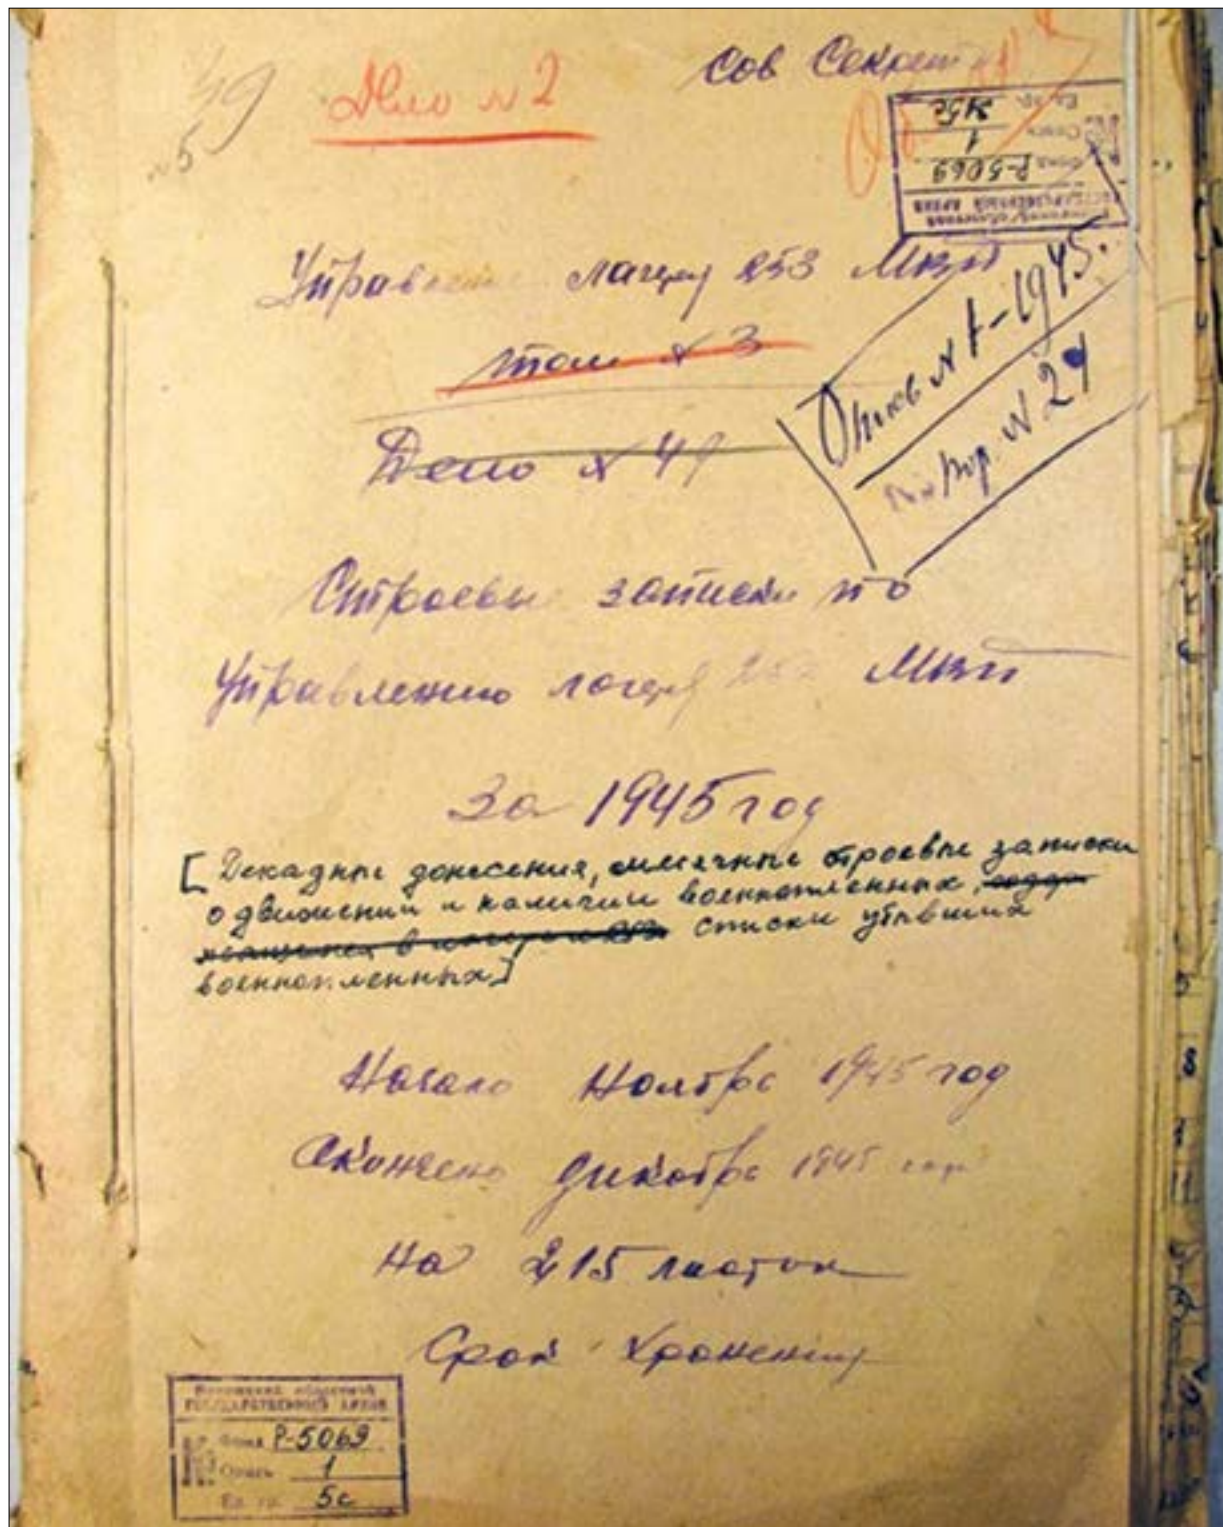 59
№5
Дело № 2
Сов Секрет
Управ лагеря 253 МВД
том № 3
Дело № 49
Опись № 1-1945.
пор. № 24
Строевы записки по
Управлению лагеря МВД
За 1945 год
[Декадные донесения, месячные строевые записки
о движении и наличии военнопленных,
списки убывших
военнопленных]
Начато Ноябрь 1945 год
Окончено декабрь 1945
На 215 листах
Срок хранения
ГОСУДАРСТВЕННЫЙ АРХИВ
Фонд Р-5069
Опись 1
Ед. хр. 5с
ГОСУДАРСТВЕННЫЙ АРХИВ
Фонд Р-5069
Опись 1
Ед. хр.